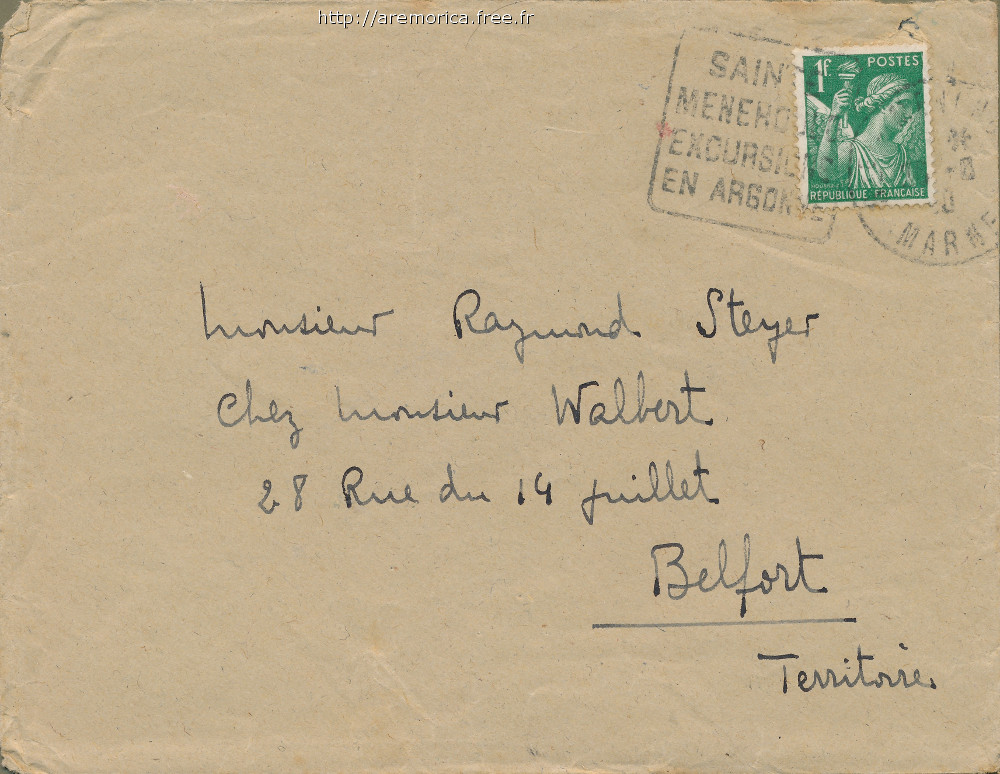 http://aremorica.free.fr
SAIN
MENEHOU
EXCURSI
EN ARGONNE
1f POSTES
RÉPUBLIQUE FRANÇAISE
MARNE
Monsieur Raymond Steyer
chez Monsieur Walbert
28 Rue du 14 juillet
Belfort
Territoire